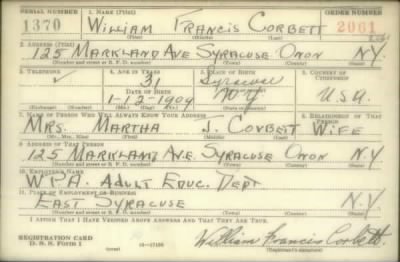 SERIAL NUMBER 1. NAME (Print) ORDER NUMBER
1370 WILLIAM FRANCIS CORBETT 2061
(First) (Middle) (Last)
2. ADDRESS (Print)
125 MARKLAND AVE SYRACUSE ONON N.Y.
(Number and street or R. F. D. number) (Town) (County) (State)
3. TELEPHONE 4. AGE IN YEARS 5. PLACE OF BIRTH 6. COUNTRY OF CITIZENSHIP
31 Syracuse
DATE OF BIRTH
1-12-1909 N.Y. U.S.A.
(Exchange) (Number) (Mo.) (Day) (Yr.) (State or country)
7. NAME OF PERSON WHO WILL ALWAYS KNOW YOUR ADDRESS 8. RELATIONSHIP OF THAT PERSON
MRS. MARTHA J. CORBETT WIFE
(Mr., Mrs., Miss) (First) (Middle) (Last)
9. ADDRESS OF THAT PERSON
125 MARKLAND AVE. SYRACUSE ONON N.Y
(Number and street or R. F. D. number) (Town) (County) (State)
10. EMPLOYER'S NAME
W.P.A. ADULT EDUC. DEPT
11. PLACE OF EMPLOYMENT OR BUSINESS
EAST SYRACUSE N.Y
(Number and street or R. F. D. number) (Town) (County) (State)
I AFFIRM THAT I HAVE VERIFIED ABOVE ANSWERS AND THAT THEY ARE TRUE.
REGISTRATION CARD
D. S. S. FORM 1 (over) William Francis Corbett
(Registrant's signature)